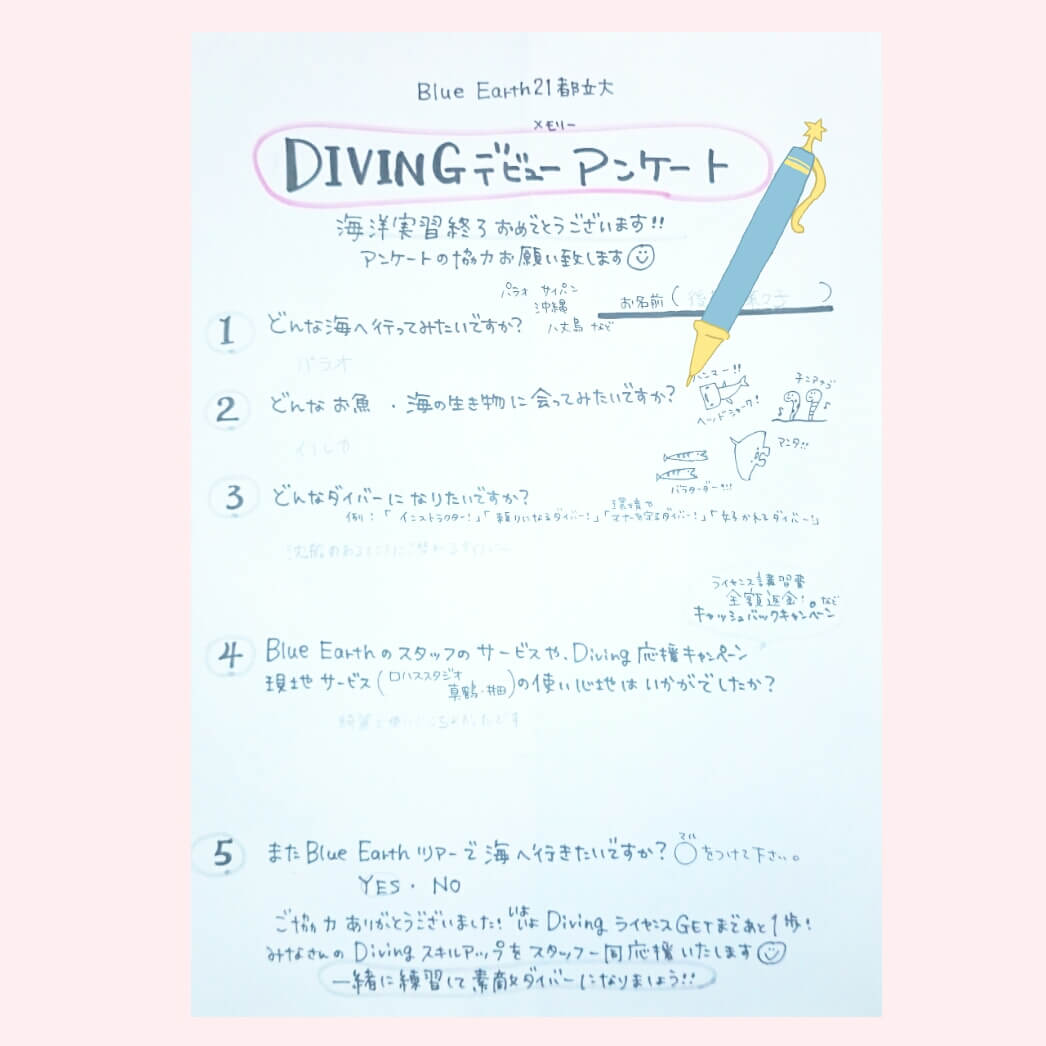 Blue Earth21都立大
メモリー
DIVINGデビューアンケート
海洋実習終了おめでとうございます!!
アンケートの協力お願い致します
お名前( )
パラオ サイパン
沖縄
八丈島 など
1 どんな海へ行ってみたいですか?
パラオ
2 どんなお魚・海の生き物に会ってみたいですか?
ハンマー!!
ヘッドシャーク!
チンアナゴ
イルカ
マンタ!!
バラクーダー!!!
3 どんなダイバーになりたいですか?
例:「インストラクター!」「頼りになるダイバー!」「環境やマナーを守るダイバー!」「女子かえるダイバー!」
ライセンス講習費
全額返金!など
キャッシュバックキャンペーン
4 Blue Earthのスタッフのサービスや、Diving応援キャンペーン
現地サービス(ロハススタジオ 真鶴・井田)の使い心地はいかがでしたか?
5 またBlue Earthツアーで海へ行きたいですか?○をつけて下さい。
マル
YES・NO
ご協力ありがとうございました!いよいよDivingライセンスGETまであと1歩!
みなさんのDivingスキルアップをスタッフ一同応援いたします
一緒に練習して素敵なダイバーになりましょう!!